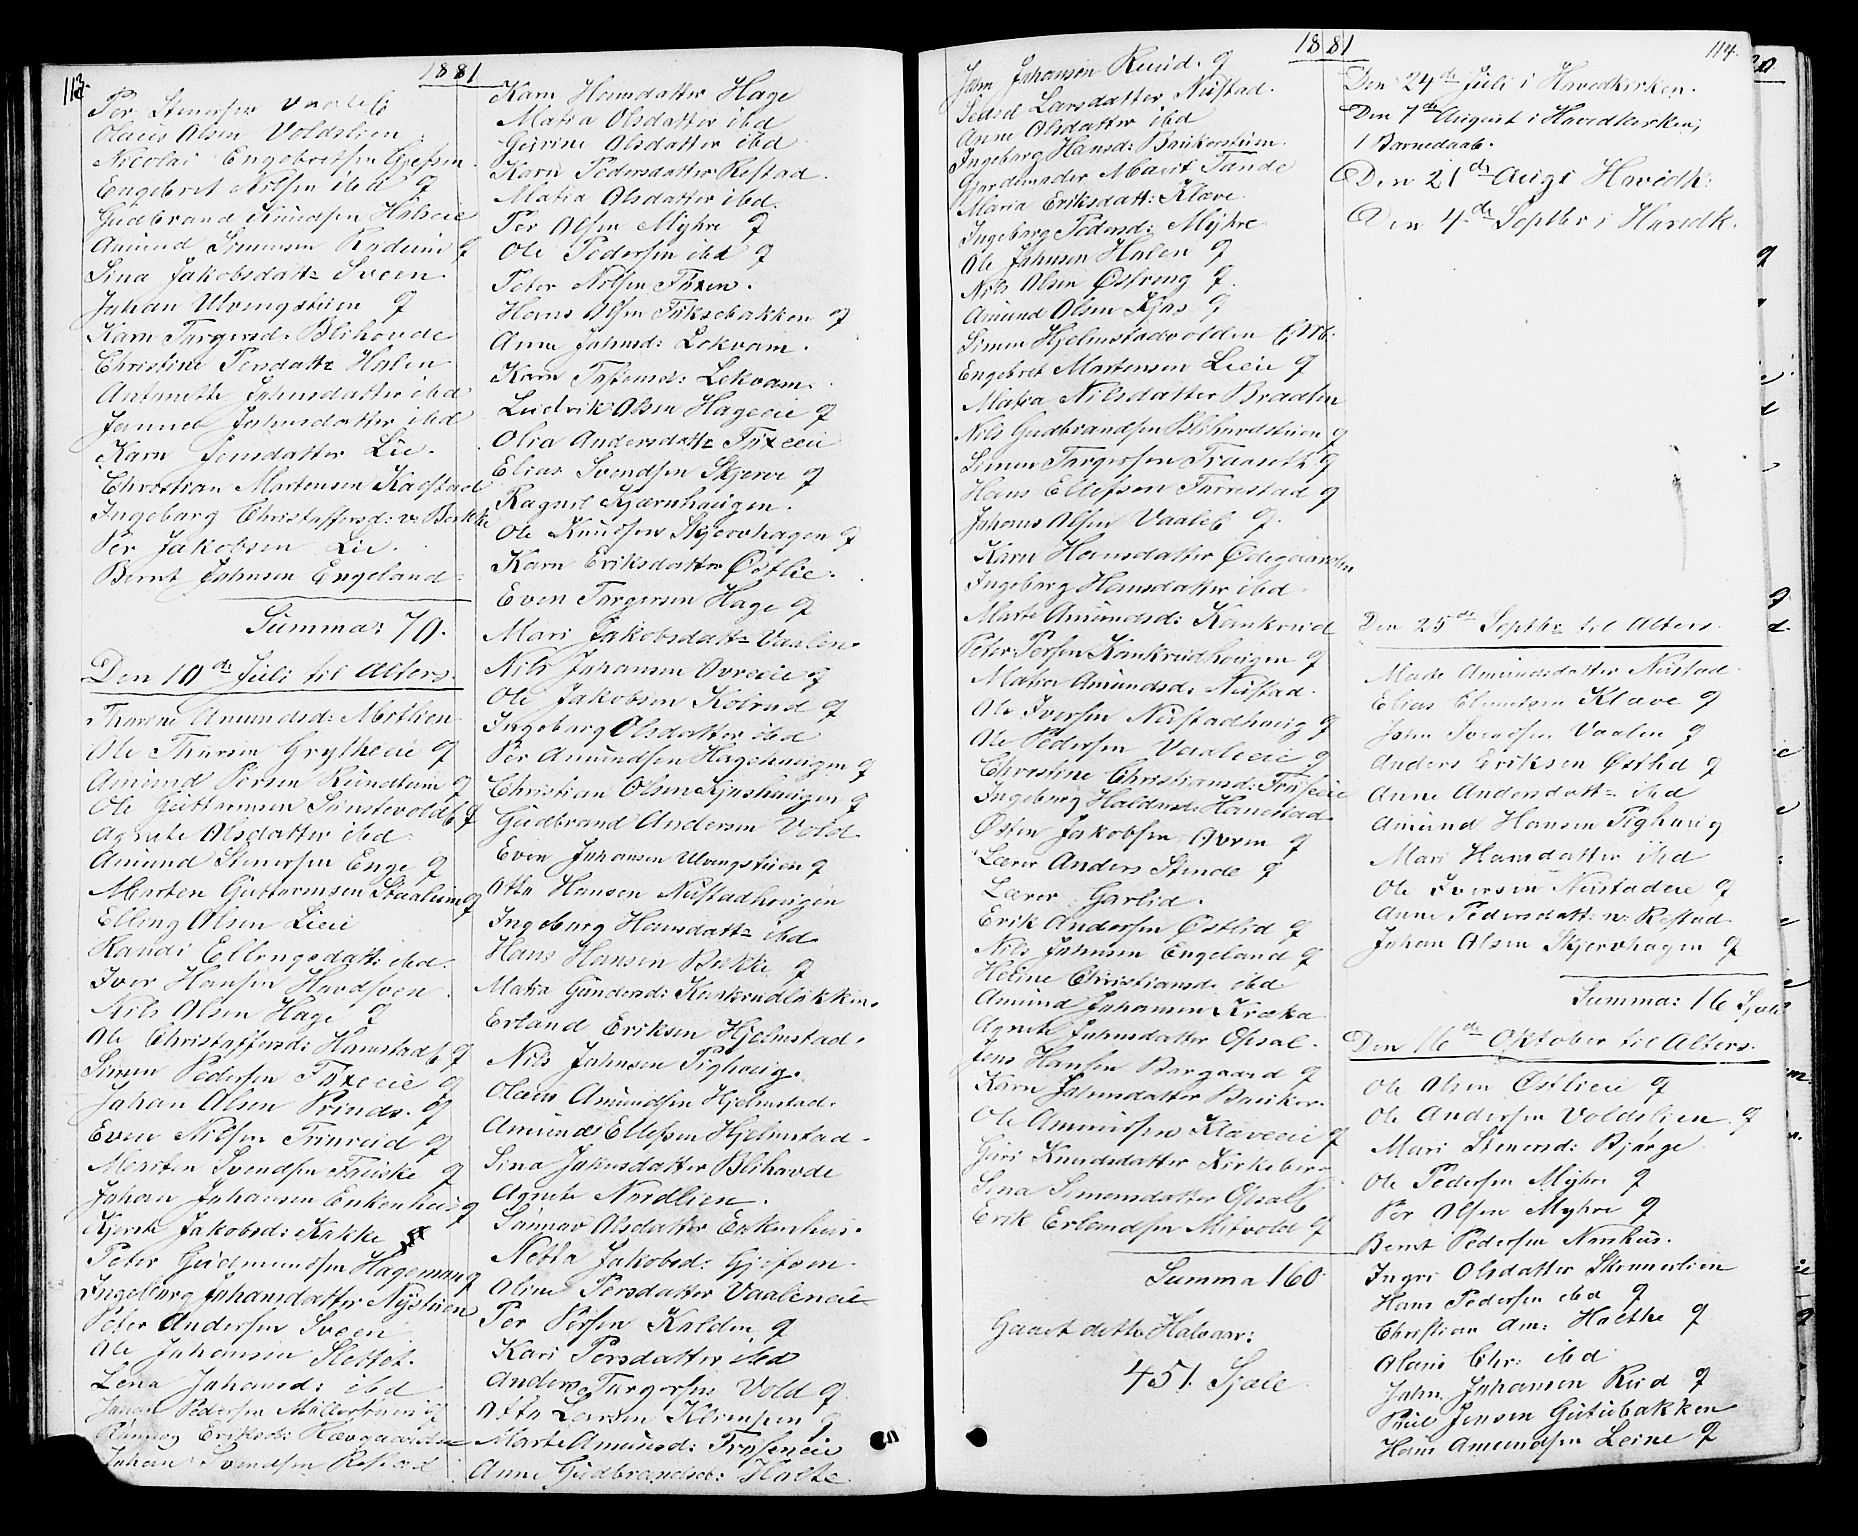 113.
1881
Per Stenersen Vaaleb
Olaus Olsen Voldslien
Nicolai Engebretsen Gjefsen
Engebret Nilsen ibd q
Gudbrand Knudsen Halveie
Amund Simensen Rudeim q
Sina Jakobsdatt: Sveen
Johan Ulvengstuen q
Karn Torgersd: Blihovde
Christine Persdatt: Holen
Antonette Johnsdatter ibd
Jonnea Johnsdatter ibd
Karn Jensdatter Lie.
Christian Mortensen Kaefstad
Ingeborg Christoffersd: v: Bekke
Per Jakobsen Lie.
Bernt Johnsen Engeland
Summa: 70.
Den 10de Juli til Alters.
Thorine Amundsd: Motlien
Ole Thorsen Grytheeie q
Amund Persen Rundtom q
Ole Guttormsen Sønstevoldb q
Agnete Olsdatter ibd
Amund Stenersen Enge q
Morten Guttormsen Staaleim q
Elling Olsen Lieeie
Randi Ellingsdatt: ibd.
Iver Hansen Hovdsven
Nils Olsen Hage q
Ole Christoffersd: Hamstadb q
Simen Pedersen Fixeeie q
Johan Olsen Prinds. q
Even Nilsen Trøneeid q
Morten Svendsen Friiske q
Johan Johansen Enkenhus q
Kjersti Jakobsd: Kakke
Peter Gudmundsen Hagemoen q
Ingeborg Johansdatter Nystuen
Peter Andersen Sveen
Ole Johansen Slettet.
Lena Johansd: ibd
Johan Pedersen Møllerstuen q
Rønnog Eriksd: Hævgaarden
Johan Svendsen Rostad
Karn Hansdatter Hage
Matia Olsdatter ibd
Guirine Olsdatter ibd
Karn Pedersdatter Rostad.
Matia Olsdatter ibd.
Per Olsen Myhre q
Ole Pedersen ibd q
Peter Nilsen Fixen.
Hans Olsen Fiksebakken q
Anne Johnsd: Lokvam.
Karn Tostensd: Lekvam.
Ludvik Olsen Hageeie q
Olia Andersdatt: Fixeeie
Elias Svendsen Skjerve q
Ragnil Kjærnhaugen.
Ole Knudsen Skjervhagen q
Karn Eriksdatter Østlie.
Even Torgersen Hage q
Mari Jakobsdatt: Vaalen.
Nils Johansen Ovreeie q
Ole Jakobsen Koirud q
Ingeborg Olsdatter ibd
Per Amundsen Hagehaugen q
Christian Olsen Kjoshaugen q
Gudbrand Andersen Vold
Even Johansen Ulvengstuen q
Otto Hansen Nustadhaugen
Ingeborg Hansdatt: ibd
Hans Hansen Bekke q
Matia Gundersd: Kankrudløkken.
Erland Eriksen Hjelmstad.
Nils Johnsen Pighaug.
Olaus Amundsen Hjelmstad.
Amund Ellefsen Hjelmstad.
Sina Johnsdatter Blihovde
Agnete Nordlien.
Gunnor Olsdatter Enkenhus.
Netta Jakobsd: Gjefsen.
Oline Persdatter Vaaleneie
Per Persen Kalden q
Kari Persdatter ibd
Anders Torgersen Vold q
Otto Larsen Klompen q
Marte Amundsd: Froseneie
Anne Gudbrandsd: Holte
1881
114.
John Johansen Ruud. q
Sidsel Larsdatter Nustad.
Agne Olsdatter ibd
Ingeborg Hansd: Baukerstuen
Gjordemoder Marit Tande
Maria Eriksdatt: Klæve
Ingeborg Pedersd: Myhre
Ole Johnsen Holen q
Nils Olsen Østreng q
Amund Olsen Kjos q
Simen Hjelmstadvolden
Engebret Mortensen Lieie q
Matia Nilsdatter Braaten
Nils Gudbrandsen Blihovdstuen q
Simen Torgersen Traaseth q
Hans Ellefsen Torrestad q
Johans Olsen Vaaleb q
Karn Hansdatter Ødegaarden
Ingeborg Hansdatter ibd
Marte Amundsd: Kankrud
Peter Persen Kankrudhaugen q
Matia Amundsd: Nustad.
Ole Iversen Nustadhaug q
Ole Pedersen Vaaleeie q
Christine Christiansd: Froseeie
Ingeborg Haldorsd: Hanestad
Østen Jakobsen Ovren q
Lærer Anders Stende q
Lærer Garlid.
Erik Andersen Østlid q
Nils Johnsen Engeland q
Heline Christiansd: ibd
Amund Johansen Kræka
Agnete Johnsdatter Opsal.
Jens Hansen Borgaard q
Karn Johnsdatter Bauker.
Ole Amundsen Klæveeie q
Guri Knudsdatter Kirkeberg
Sina Simensdatter Opsalb
Erik Erlandsen Mitvold q
Summa 160
Gaaet dette Halvaar:
451. Sjæle
Den 24de Juli i Hovedkirken.
Den 7de August i Hovedkirken;
1 Barnedaab.
Den 21de Aug i Hovedk:
Den 4de Septbr i Hovedk.
Den 25de Septbr til Alters.
Marte Amundsdatter Nustad.
Elias Clemetsen Klæve q
John Svendsen Vaalen q
Anders Eriksen Østlid q
Anne Andersdatt: ibd
Amund Hansen Pighaug
Mari Hansdatter ibd
Ole Iversen Nustadeie q
Anne Pedersdatt: n: Rostad
Johan Olsen Skjervhagen q
Summa: 16 Sjæle
Den 16de Oktober til Alters.
Ole Olsen Østlieeie q
Ole Andersen Voldslien q
Mari Simensd: Bjørge.
Ole Pedersen Myhre q
Per Olsen Myhre q
Bernt Pedersen Norshus.
Ingri Olsdatter Skammerlien
Hans Pedersen ibd q
Christian Am: Holthe q
Olaus Chr: ibd
John Johansen Ruud q
Poul Jensen Gutubakken
Hans Amundsen Leine q